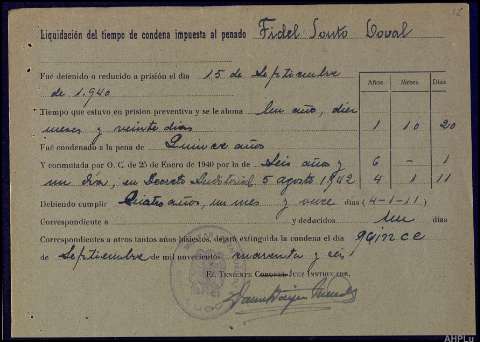 Liquidación del tiempo de condena impuesta al penado Fidel Souto Doval
Fué detenido o reducido a prisión el día 15 de Septiembre
de 1.940
Años Meses Días
Tiempo que estuvo en prisión preventiva y se le abona Un año, diez
meses y veinte días 1 10 20
Fué condenado a la pena de Quince años
Y conmutada por O. C. de 25 de Enero de 1940 por la de Seis años y 6 - 1
un día, en Decreto Auditorial 5 agosto 1942 4 1 11
Debiendo cumplir Cuatro años, un mes y once días (4-1-11)
Correspondiente a y deducidos un días
Correspondientes a otros tantos años bisiestos, dejará extinguida la condena el día quince
de Septiembre de mil novecientos cuarenta y seis
EL TENIENTE CORONEL JUEZ INSTRUCTOR,
AHPLu